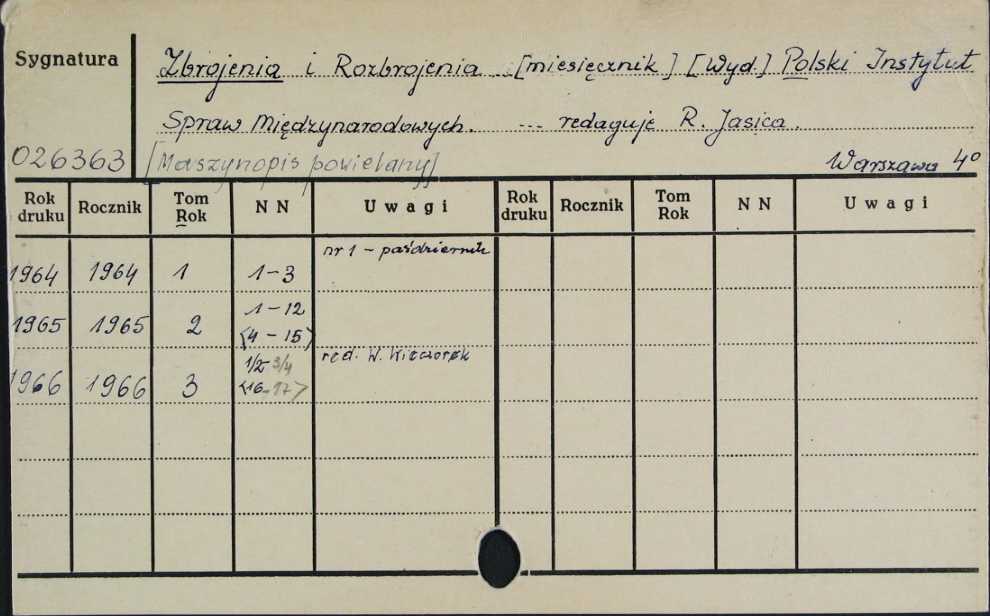 Sygnatura
Zbrojenia i Rozbrojenia ... [miesięcznik] [Wyd.] Polski Instytut
Spraw Międzynarodowych. ... redaguje R. Jasica.
026363 [Maszynopis powielany] Warszawa 4°
Rok druku Rocznik Tom Rok NN Uwagi Rok druku Rocznik Tom Rok NN Uwagi
nr 1 - październik
1964 1964 1 1-3
1-12
1965 1965 2 <4-15>
red. W. Wieczorek
1/2 3/4
1966 1966 3 <16-17>